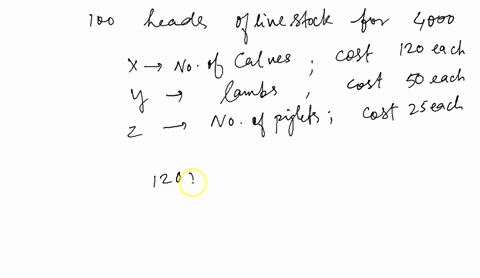 100 heades of live stock for 4000
x → No. of Calves ; cost 120 each
y → lambs , cost 50 each
z → No. of piglets ; cost 25 each
120